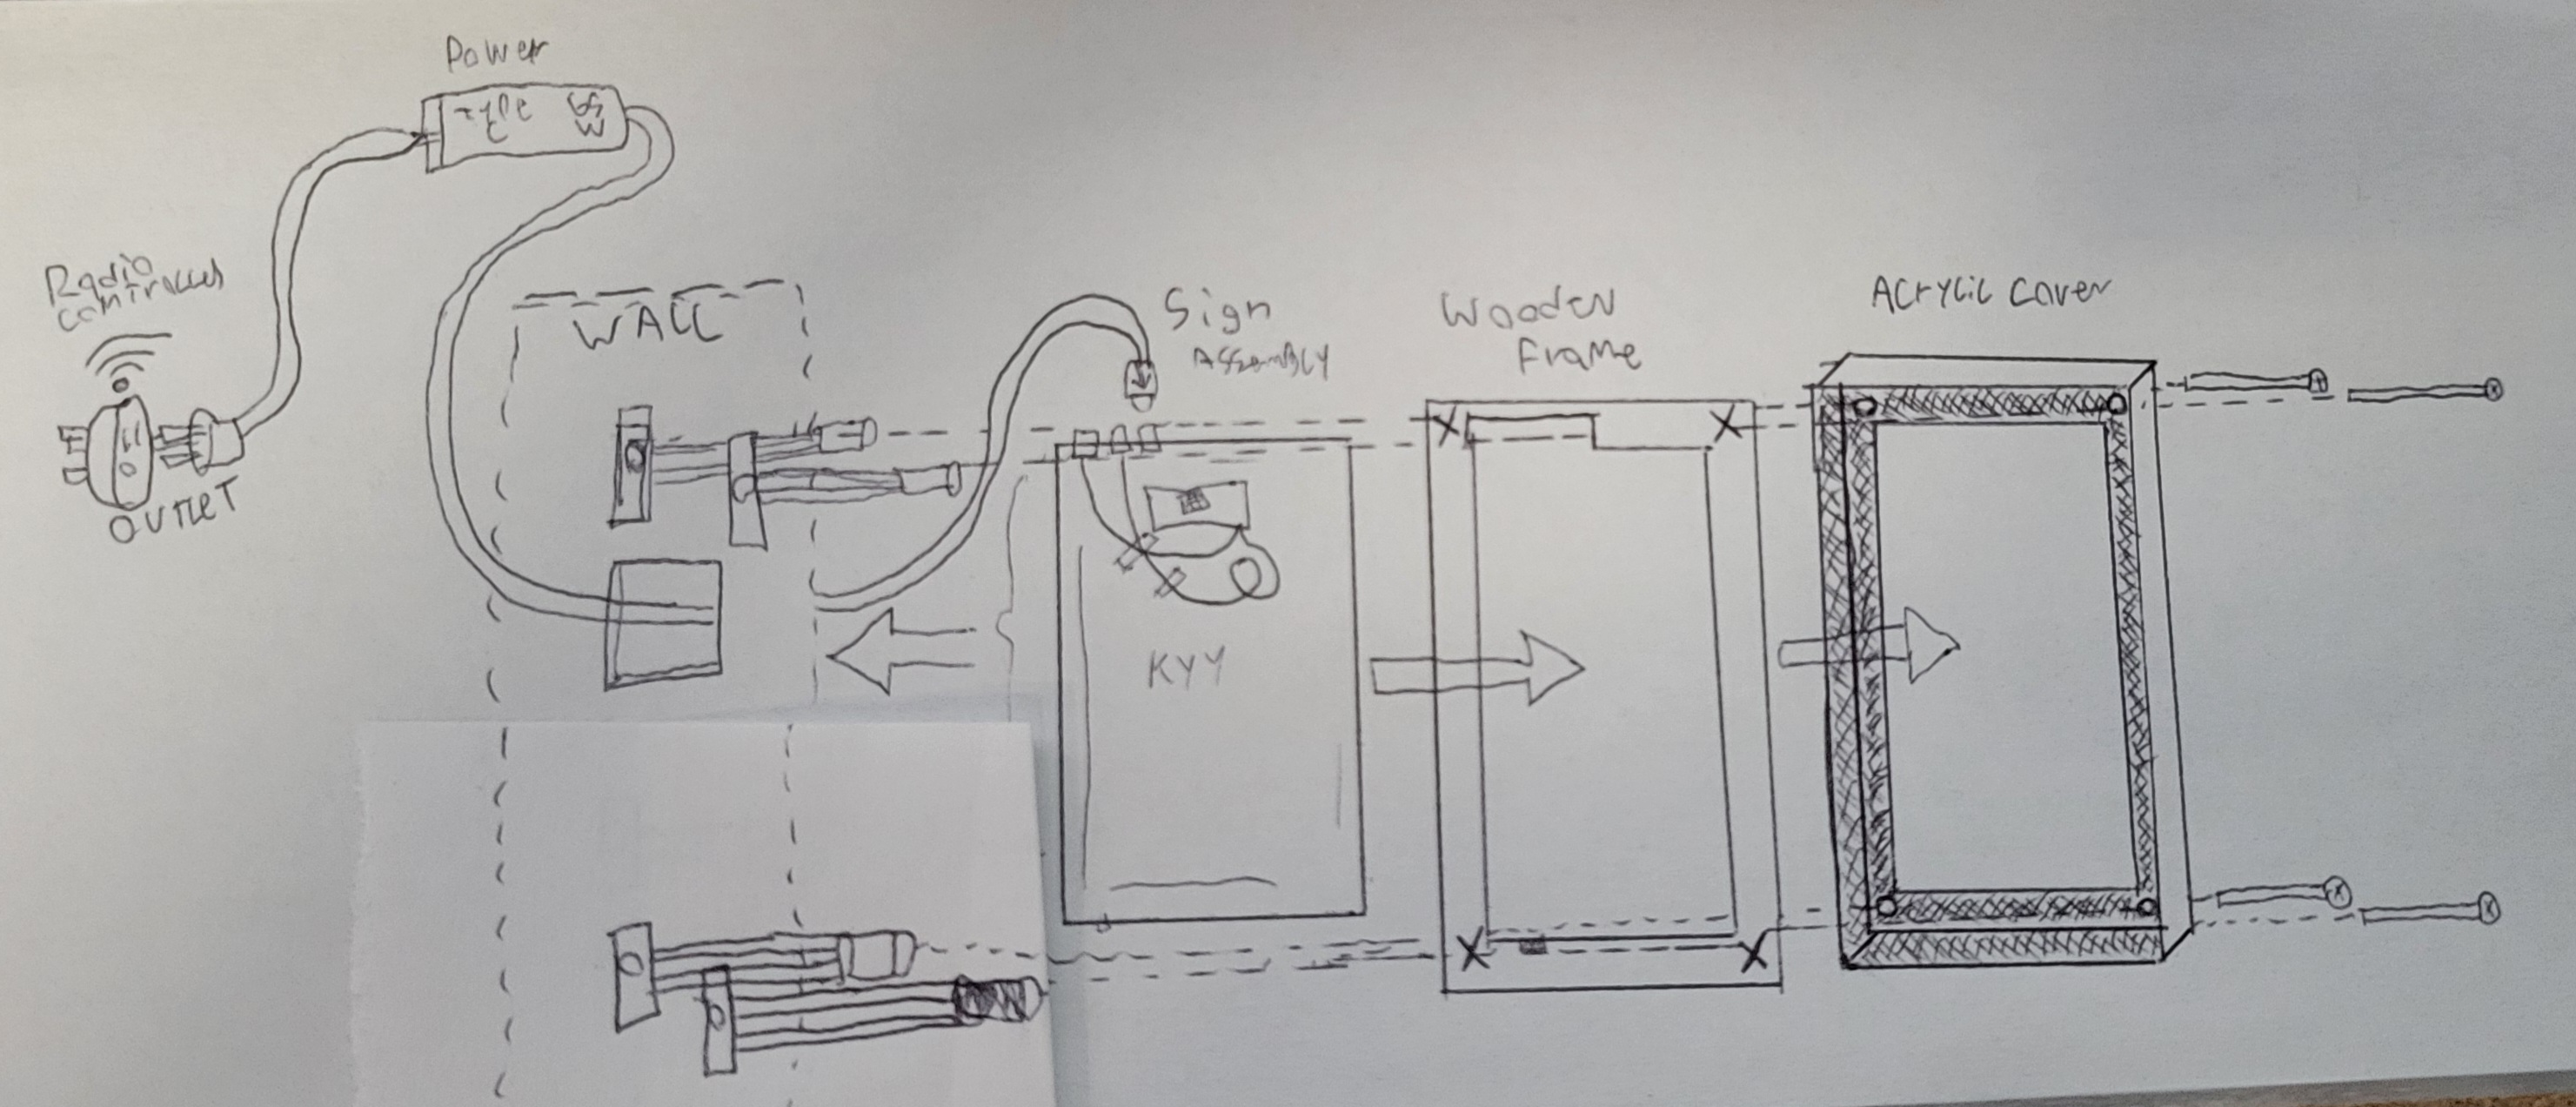 Power
Radio
controlled
OUTLET
WALL
Sign
Assembly
KYY
Wooden
Frame
Acrylic Cover